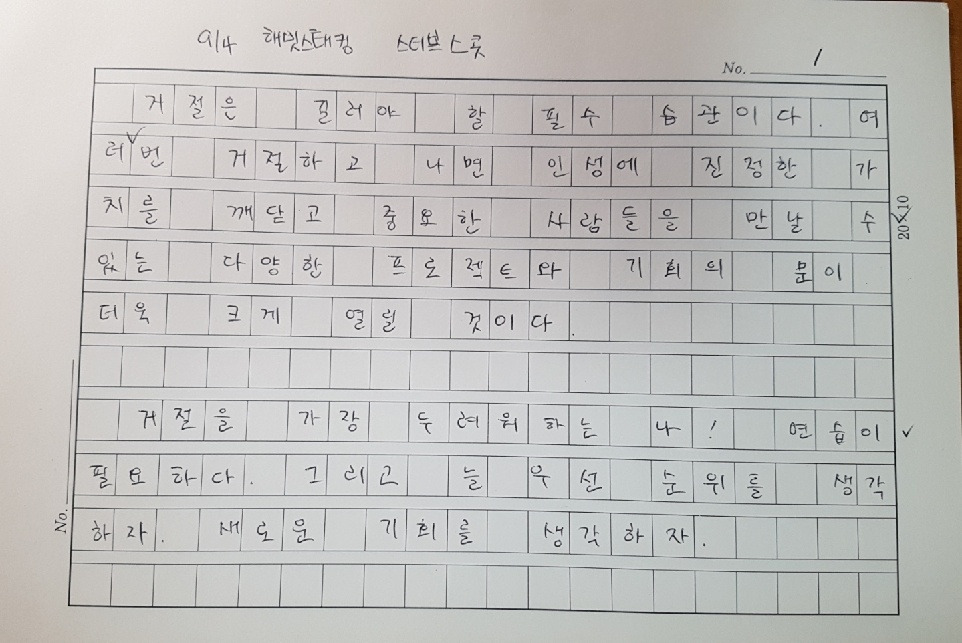 9/4 해빗스태킹 스티브 스콧
No. 1
거절은 길러야 할 필수 습관이다. 여
러∨번 거절하고 나면 인생에 진정한 가
치를 깨닫고 중요한 사람들을 만날 수
있는 다양한 프로젝트와 기회의 문이
더욱 크게 열릴 것이다.
거절을 가장 두려워하는 나! 연습이 ✓
필요하다. 그리고 늘 우선 순위를 생각
하자. 새로운 기회를 생각하자.
20×10
No.